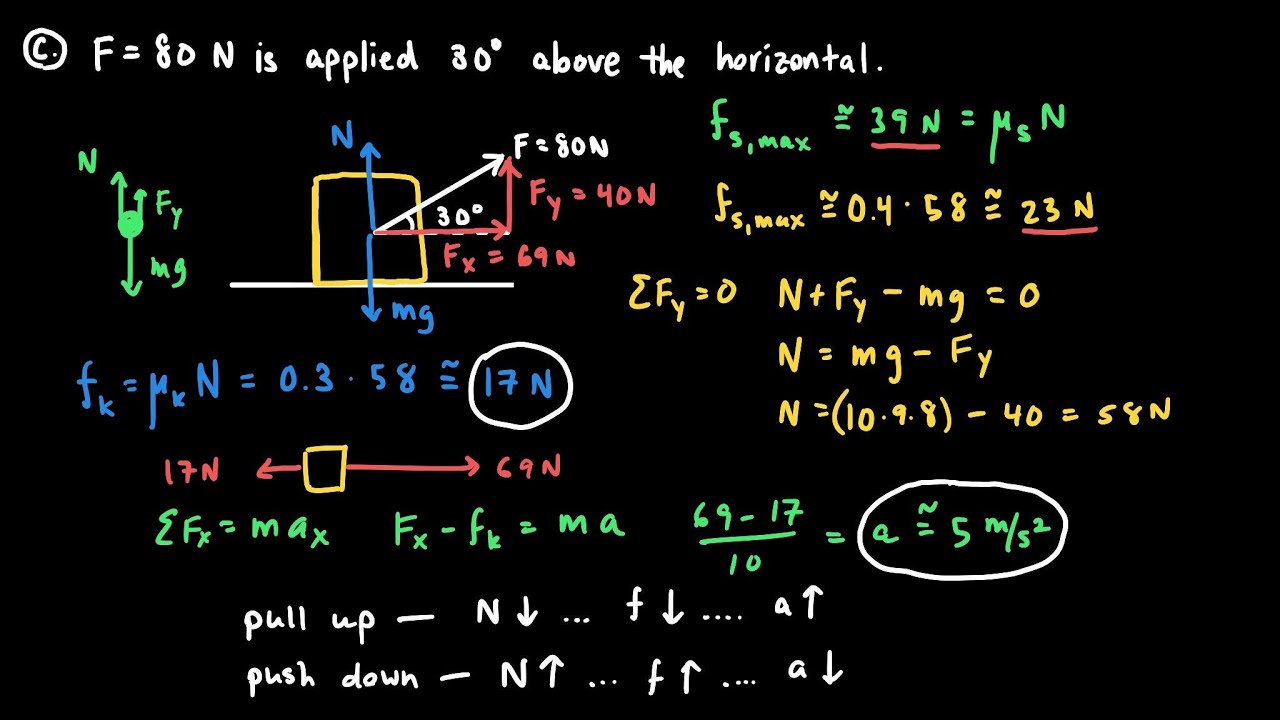 C. F = 80 N is applied 30° above the horizontal.
N
F_y
mg
N
F = 80N
30°
F_y = 40N
F_x = 69N
mg
f_s,max ≅ 39 N = μ_s N
f_s,max ≅ 0.4 · 58 ≅ 23 N
ΣF_y = 0 N + F_y − mg = 0
N = mg − F_y
N = (10 · 9.8) − 40 = 58N
f_k = μ_k N = 0.3 · 58 ≅ 17 N
17N 69N
ΣF_x = ma_x F_x − f_k = ma 69 − 17 / 10 = a ≅ 5 m/s²
pull up — N ↓ ... f ↓ .... a ↑
push down — N ↑ ... f ↑ .... a ↓